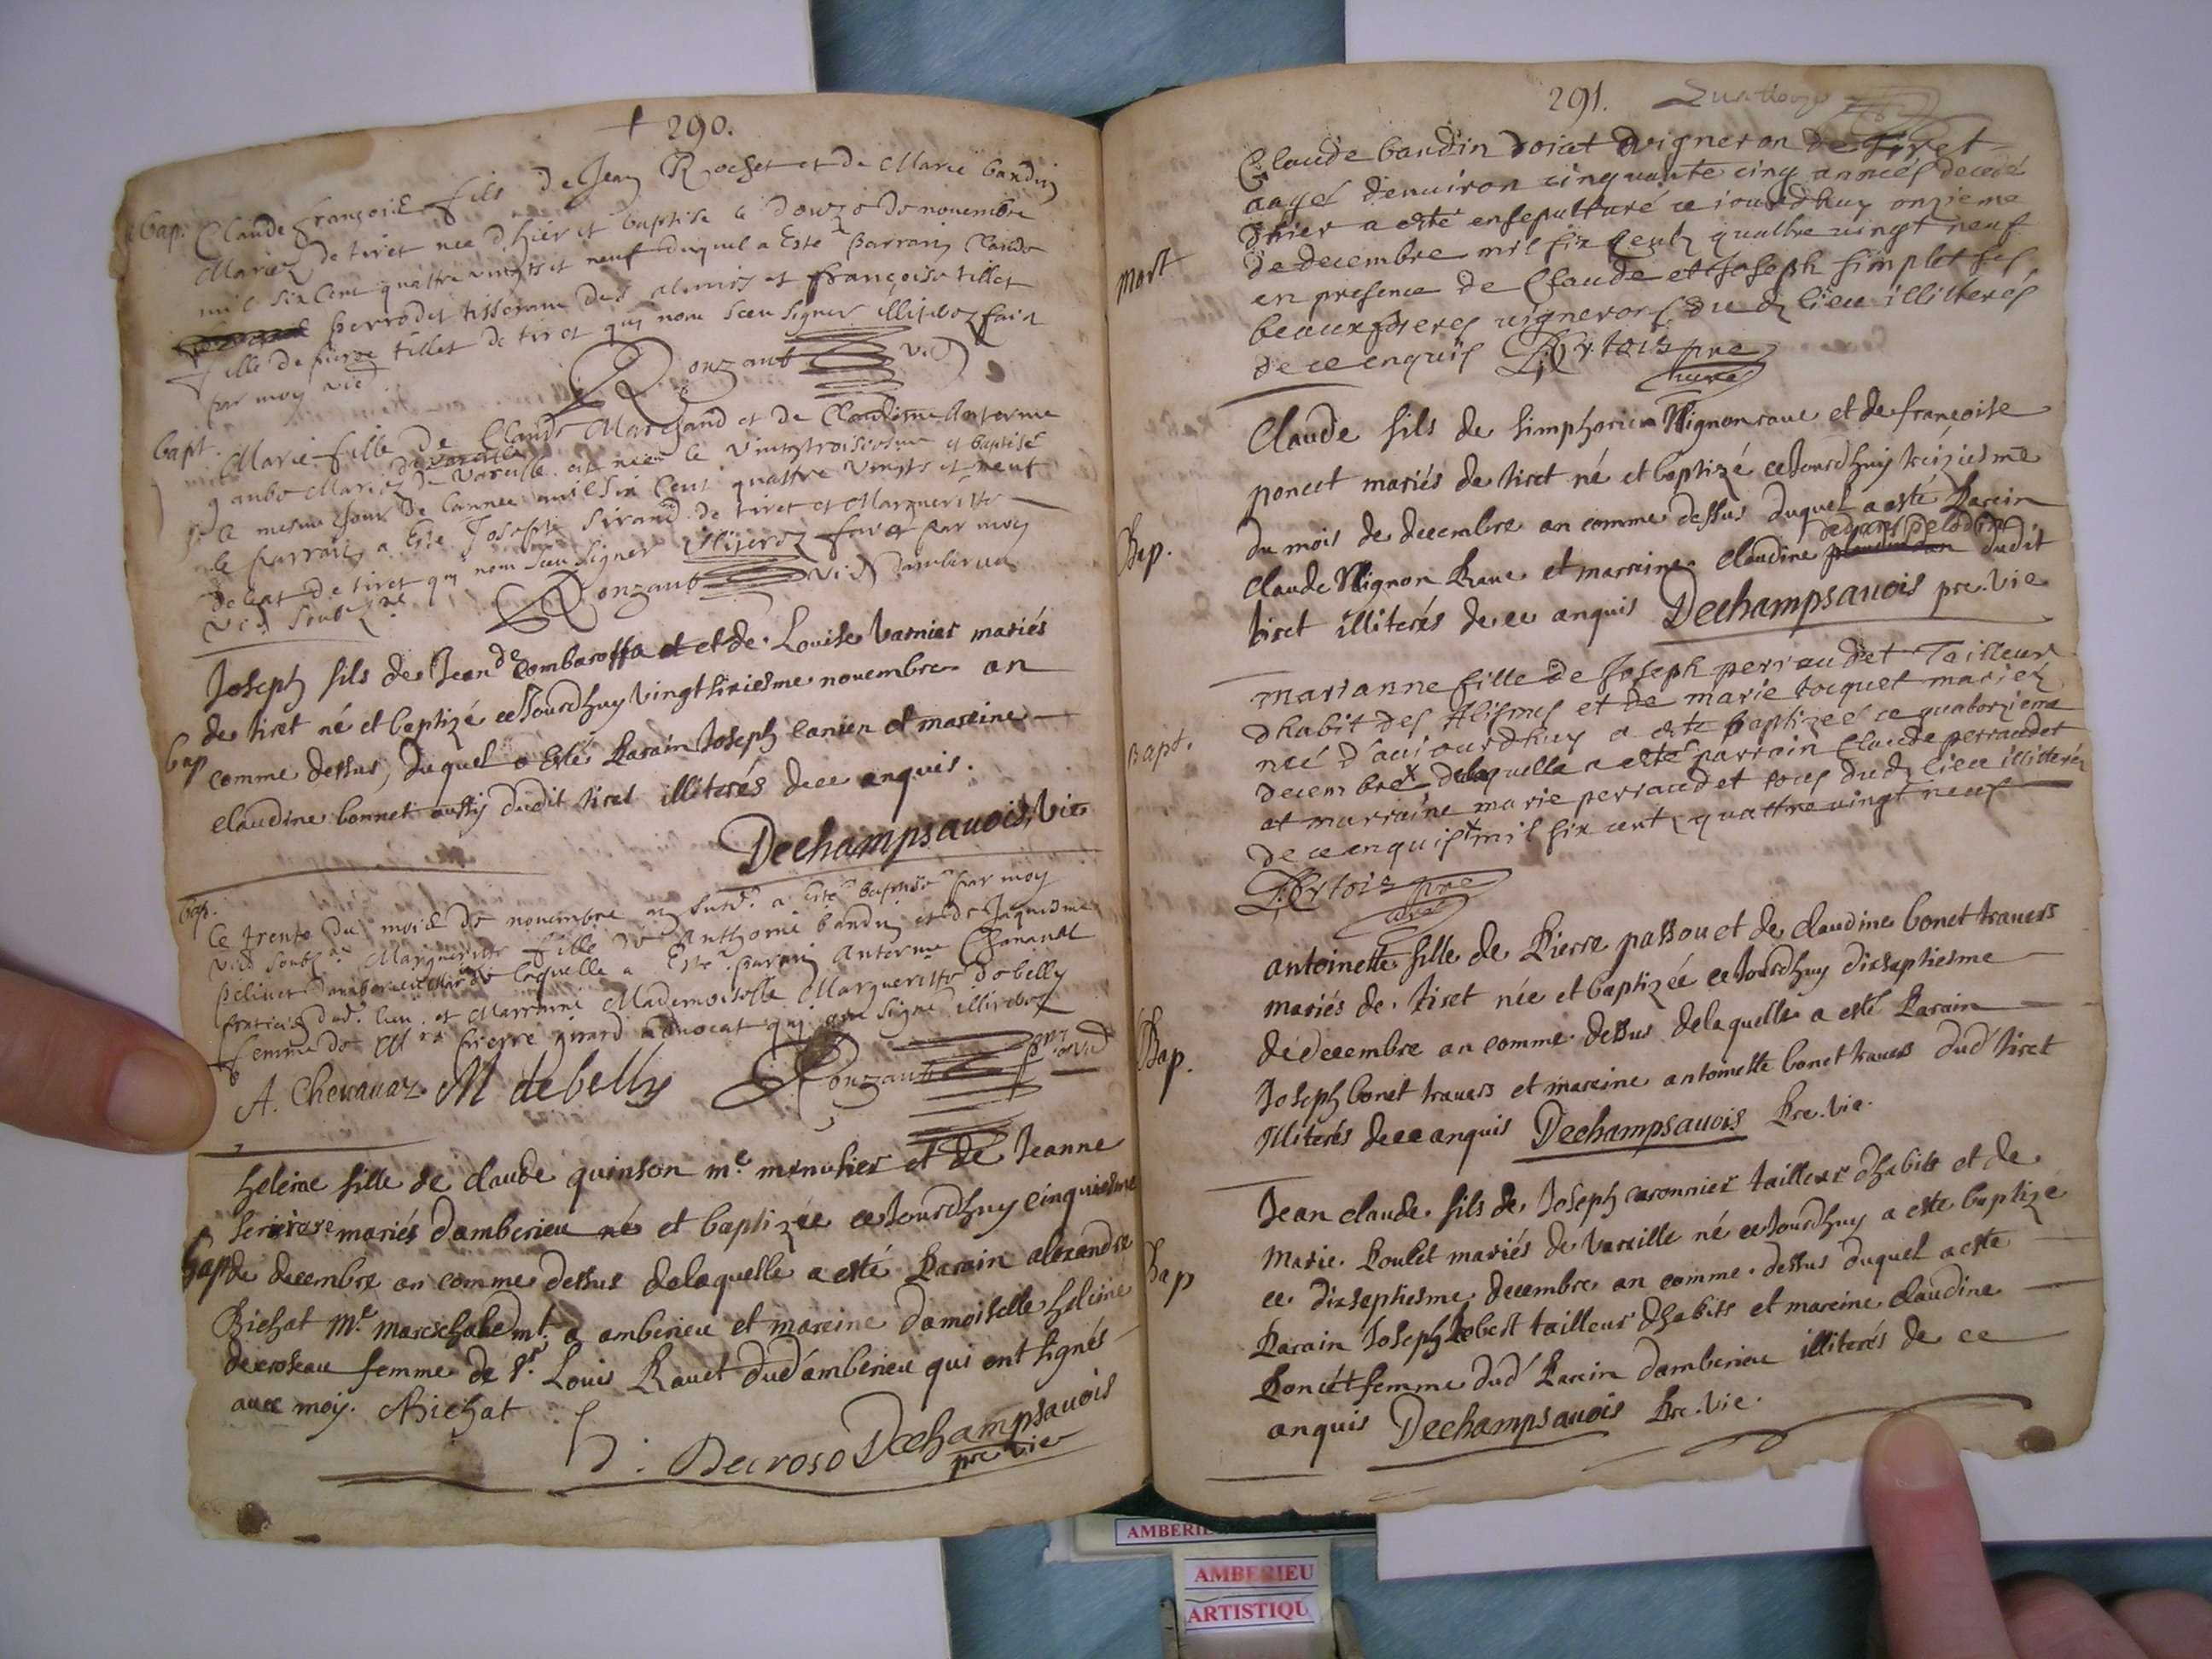 + 290.
Bap. Claude françois fils de Jean Rochet et de Marie baudin
Mariez de tiret nee d'hier et baptise le douze de novembre
mil six cent quattre vingts et neuf duquel a Esté parrain Claude
perrodet tisseram des abimes et françoise tillet
fille de pierre tillet de tiret qui nont sceu signer illiterez fait
par moy vic
Ronzaut vic
bapt. Marie fille de Claude Marchand et de Claudine
Mariez de vareille est nee le vingttroisiesme et baptisé
le mesme jour de l'annee mil six cent quattre vingts et neuf
le parrain a Esté Joseph sirand de tiret et Margueritte
de tiret qui nont sceu signer illiterez faict par moy
vic soubz.né Ronzaut vic damberieu
Joseph fils de Jean de Combarossa et de Louise varnier mariés
de tiret né et baptizé ce Jourdhuy vingt sixiesme novembre an
bap comme dessus, duquel a Esté Parain Joseph et mareine
claudine bonnet aussy dudit tiret illiterés dece anquis.
Dechampsavois, Vic
bap.
Ce trente du moid de novembre a Esté baptisé par moy
vic soubz.né Margueritte fille de Anthoine baudin et de Jaquesme
laquelle a Esté parrain Antoine
praticien dud. lieu et Marraine Mademoiselle Margueritte debelly
femme de Mre pierre girard advocat qui ont signé illiterez
A. Chenavaz M debelly Ronzaut
heleine fille de claude quinson me. menusier et de Jeanne
mariés damberieu né et baptizée ce Jourdhuy cinquiesme
bap de decembre an comme dessus delaquelle a esté Parain alexandre
Bichat Me. mareschal demt. a amberieu et mareine damoiselle heleine
decroseau femme de Sr. Louis Ravet dud amberieu qui ont signés
avec moy. ABichat
h: Decroso Dechampsavois
pre vic
291.
Claude baudin vigneron de tiret
aagé denuiron cinquante cinq années decedé
dhier a esté ensepulturé ce iourdhuy onzieme
mort de decembre mil six centz quattre vingt neuf
en presence de Claude et Joseph simplet ses
beaux freres vignerons du d lieu illitterés
de ce enquis Bertois pre
Claude fils de simphorien Mignon rave et de francoise
poncet mariés de tiret né et baptizé ce Jourdhuy treiziesme
Bap. du mois de decembre an comme dessus duquel a esté Parein
claude Mignon Rave et marreine claudine dudit
tiret illiterés de ce anquis Dechampsavois pre. Vic
marianne fille de Joseph perraudet Tailleur
dhabit des Abismes et de marie tocquet mariez
Bapt. neé d'aujourdhuy a esté baptizeé ce quatorzieme
decembre x delaquelle a esté parrain Claude perraudet
et marraine marie perraudet tous dud lieu illitterés
de ce enquis x mil six centz quattre vingt neuf
Bertois pre
antoinette fille de Pierre passou et de claudine bonet travers
mariés de tiret née et baptizée ce Jourdhuy dixseptiesme
Bap. de decembre an comme dessus delaquelle a esté Parain
Joseph bonet travers et mareine antoinette bonet travers dud tiret
Illiterés de ce anquis Dechampsavois Pre. Vic.
Jean claude fils de Joseph caronnier tailleur dhabits et de
Marie. Poulet mariés de Vareille né ce Jourdhuy a esté baptizé
Bap ce dixseptiesme decembre an comme dessus duquel a este
Parain Joseph Jobert tailleur dhabits et mareine claudine
Poncét femme dud Parain damberieu illiterés de ce
anquis Dechampsavois Pre. Vic.
AMBERIEU
ARTISTIQU